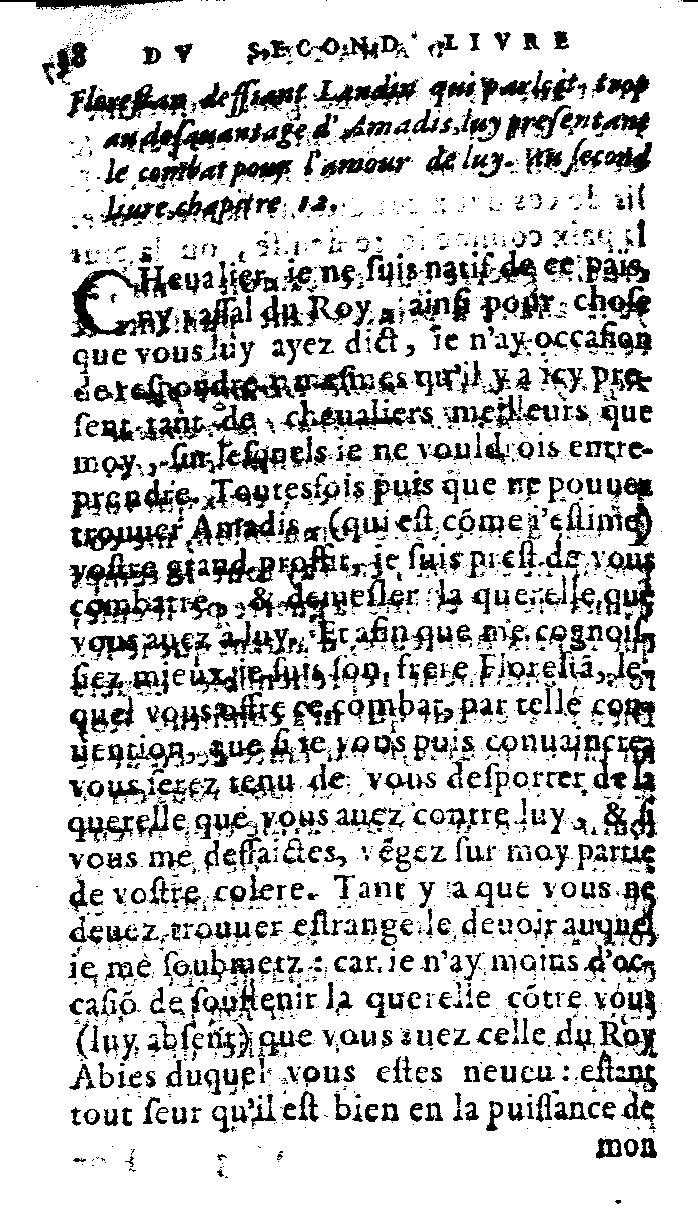 38 DV SECOND LIVRE
Florestan deffiant Landin qui parloit trop
au desauantage d'Amadis, luy presentant
le combat pour l'amour de luy. Au second
liure, chapitre 12.
CHeualier, ie ne suis natif de ce païs,
ny vassal du Roy, ainsi pour chose
que vous luy ayez dict, ie n'ay occasion
de respondre, n mesmes qu'il y a icy pre-
sent tant de cheualiers meilleurs que
moy, sur lesquels ie ne vouldrois entre-
prendre. Toutesfois puis que ne pouuez
trouuer Amadis, (qui est cõme i'estime)
vostre grand proffit, ie suis prest de vous
combatre, & demesler la querelle que
vous auez à luy. Et afin que me cognois-
siez mieux, ie suis son frere Florestã, le-
quel vous offre ce combat, par telle con-
uention, que si ie vous puis conuaincre,
vous serez tenu de vous desporter de la
querelle que vous auez contre luy, & si
vous me deffaictes, vẽgez sur moy partie
de vostre colere. Tant y a que vous ne
deuez trouuer estrange le deuoir auquel
ie me soubmetz: car ie n'ay moins d'oc-
casiõ de soustenir la querelle cõtre vous
(luy absent) que vous auez celle du Roy
Abies duquel vous estes neueu: estant
tout seur qu'il est bien en la puissance de
mon